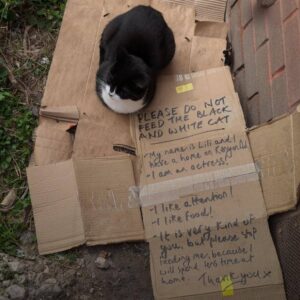 PLEASE DO NOT
FEED THE BLACK
AND WHITE CAT
- My name is Lilli and I
have a home on Regent Rd
- I am an actress.
- I like attention!
- I like food!
- It is very kind of
you, but please stop
feeding me, because I
will spend less time at
home.
Thank you x